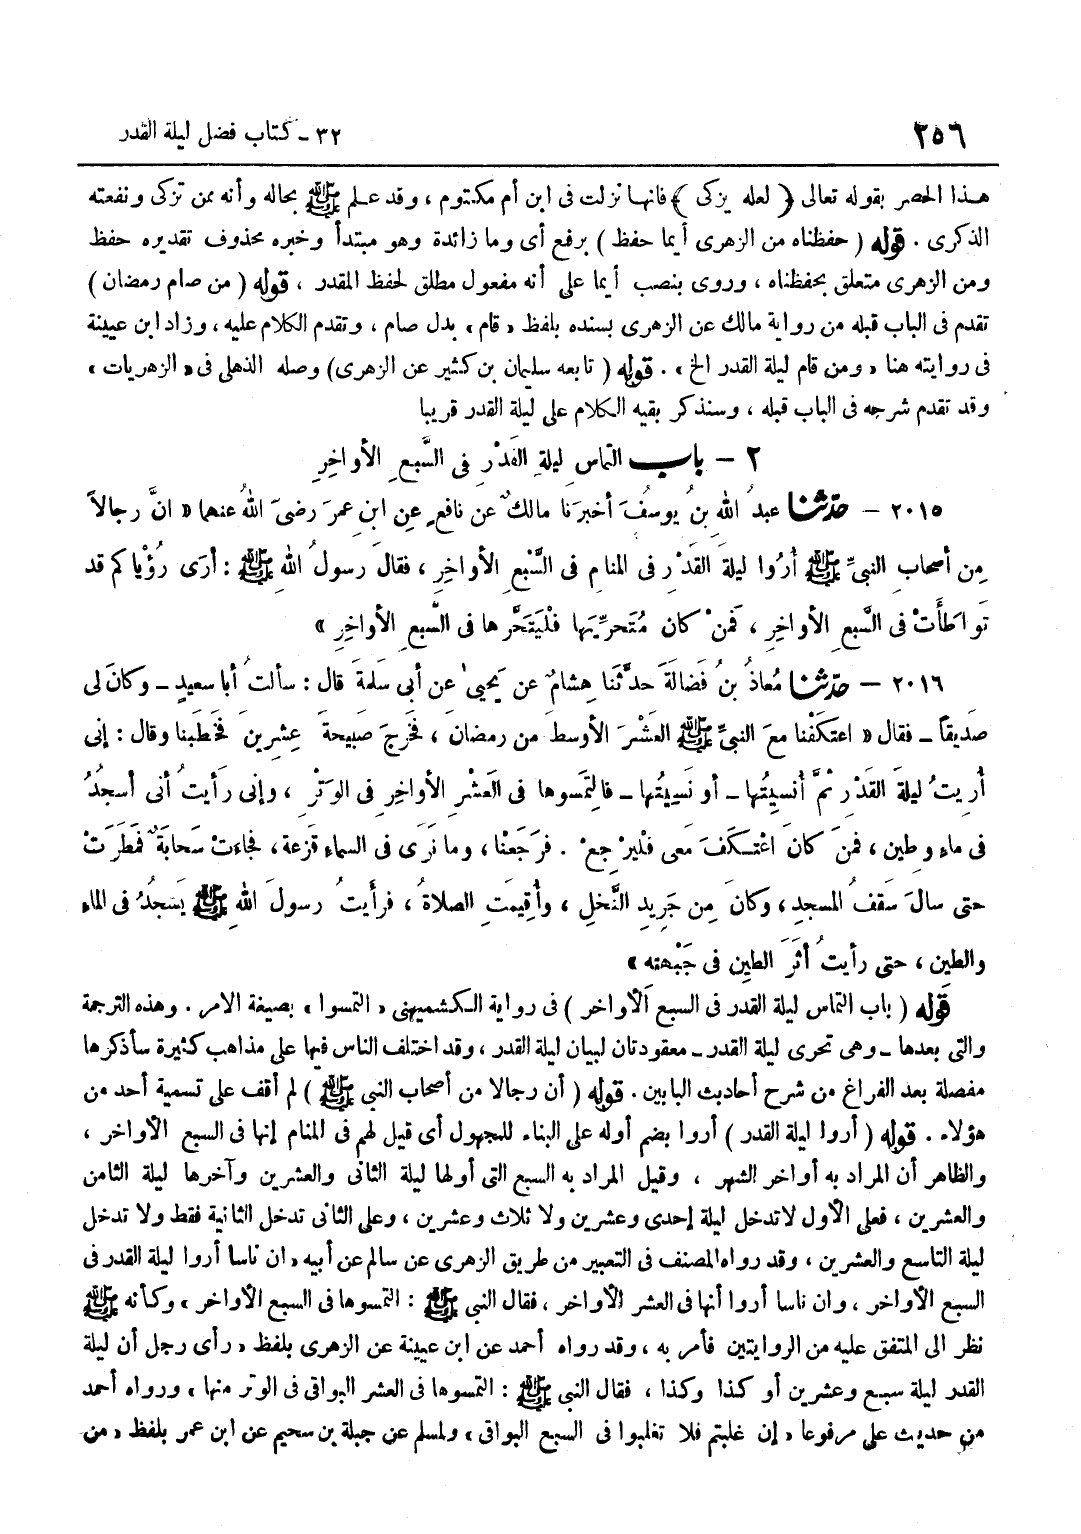 ٢٥٦ ٣٢ - كتاب فضل ليلة القدر
هذا الحصر بقوله تعالى ﴿ لعله يزكى ﴾ فانها نزلت فى ابن أم مكتوم ، وقد علم ﷺ بحاله وأنه ممن تزكى ونفعته
الذكرى . قوله ( حفظناه من الزهرى أيما حفظ ) برفع أى وما زائدة وهو مبتدأ وخبره محذوف تقديره حفظ
ومن الزهرى متعلق بحفظناه ، وروى بنصب أيما على أنه مفعول مطلق لحفظ المقدر ، قوله ( من صام رمضان )
تقدم فى الباب قبله من رواية مالك عن الزهرى بسنده بلفظ « قام » بدل صام ، وتقدم الكلام عليه ، وزاد ابن عيينة
فى روايته هنا « ومن قام ليلة القدر الخ » . قوله ( تابعه سليمان بن كثير عن الزهرى ) وصله الذهلى فى « الزهريات »
وقد تقدم شرحه فى الباب قبله ، وسنذكر بقيه الكلام على ليلة القدر قريبا
٢ - باب التماسِ ليلةِ القَدْرِ فى السَّبعِ الأواخِرِ
٢٠١٥ - حدّثنا عبدُ اللهِ بنُ يوسُفَ أخبرَنا مالكٌ عن نافعٍ عنِ ابنِ عمرَ رضىَ اللهُ عنهما « انَّ رجالاً
مِن أصحابِ النبىِّ ﷺ أُرُوا ليلةَ القَدْرِ فى المنامِ فى السَّبْعِ الأواخِرِ ، فقالَ رسولُ اللهِ ﷺ : أرَى رُؤْياكم قد
تَواطَأَتْ فى السَّبعِ الأواخِرِ ، فَمنْ كان مُتَحرِّيَها فلْيَتَحَرَّها فى السَّبعِ الأواخِرِ »
٢٠١٦ - حدّثنا مُعاذُ بنُ فَضالةَ حدَّثَنا هِشامٌ عن يَحيىٰ عن أبى سَلمةَ قال : سألتُ أبا سعيدٍ - وكانَ لى
صَديقاً - فقال « اعتكَفْنا معَ النبىِّ ﷺ العَشْرَ الأوسطَ من رمضانَ ، فخَرجَ صَبيحةَ عِشرينَ فخَطَبنا وقال : إنى
أُريتُ ليلةَ القَدْرِ ثمَّ أُنسيتُها - أو نَسِيتُها - فالتمسوها فى العَشْرِ الأواخِرِ فى الوَتْرِ ، وإنى رَأيتُ أنى أسجُدُ
فى ماءٍ وطينٍ ، فمنَ كانَ اعْتكَفَ مَعى فليرْجعْ . فرَجَعْنا ، وما نَرَى فى السماءِ قزعة ، فجاءت سَحابةٌ فمَطرَتْ
حتى سالَ سَقفُ المسجدِ ، وكانَ مِن جَريدِ النَّخلِ ، وأُقِيمَتِ الصلاةُ ، فرأيتُ رسولَ اللهِ ﷺ يَسجُدُ فى الماءِ
والطين ، حتى رأيتُ أثَرَ الطينِ فى جَبْهته »
قوله ( باب التماس ليلة القدر فى السبع الأواخر ) فى رواية الكشميهنى « التمسوا » بصيغة الامر . وهذه الترجمة
والتى بعدها - وهى تحرى ليلة القدر - معقودتان لبيان ليلة القدر ، وقد اختلف الناس فيها على مذاهب كثيرة سأذكرها
مفصلة بعد الفراغ من شرح أحاديث البابين . قوله ( أن رجالا من أصحاب النبى ﷺ ) لم أقف على تسمية أحد من
هؤلاء . قوله ( أروا ليلة القدر ) أروا بضم أوله على البناء للمجهول أى قيل لهم فى المنام إنها فى السبع الأواخر ،
والظاهر أن المراد به أواخر الشهر ، وقيل المراد به السبع التى أولها ليلة الثانى والعشرين وآخرها ليلة الثامن
والعشرين ، فعلى الأول لاتدخل ليلة إحدى وعشرين ولا ثلاث وعشرين ، وعلى الثانى تدخل الثانية فقط ولا تدخل
ليلة التاسع والعشرين ، وقد رواه المصنف فى التعبير من طريق الزهرى عن سالم عن أبيه « ان ناسا أروا ليلة القدر فى
السبع الأواخر ، وان ناسا أروا أنها فى العشر الأواخر ، فقال النبى ﷺ : التمسوها فى السبع الأواخر » وكأنه ﷺ
نظر الى المتفق عليه من الروايتين فأمر به ، وقد رواه أحمد عن ابن عيينة عن الزهرى بلفظ « رأى رجل أن ليلة
القدر ليلة سبع وعشرين أو كذا وكذا ، فقال النبى ﷺ : التمسوها فى العشر البواقى فى الوتر منها » ورواه أحمد
من حديث على مرفوعا « إن غلبتم فلا تغلبوا فى السبع البواقى » ولمسلم عن جبلة بن سحيم عن ابن عمر بلفظ « من